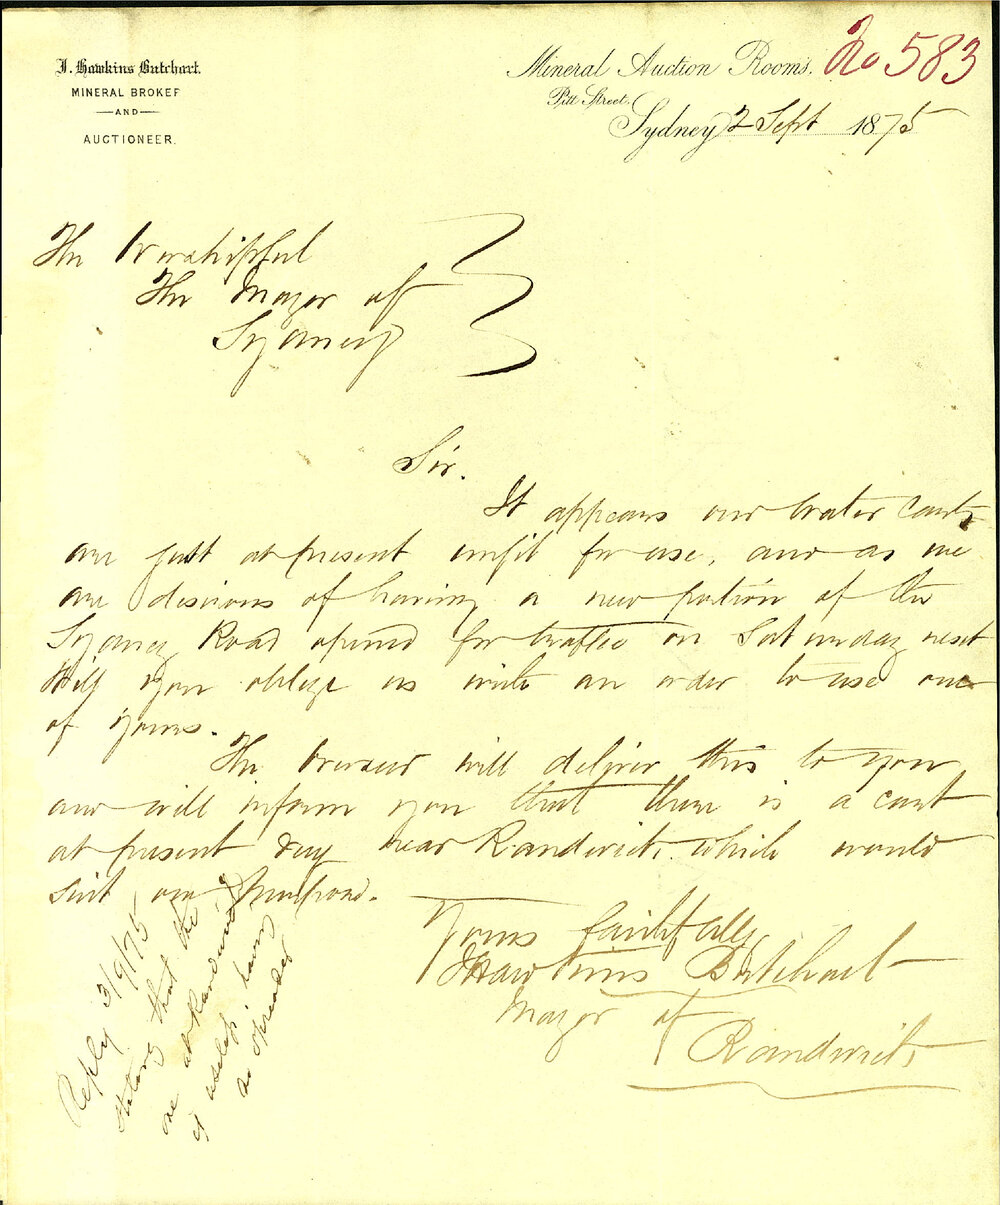 J. Hawkins Butchart.
MINERAL BROKER
—AND—
AUCTIONEER.
Mineral Auction Rooms.
No 583
Pitt Street.
Sydney 2 Sept 1875
The Worshipful
The Mayor of
Sydney
Sir.
It appears our water carts
are just at present unfit for use, and as we
are desirous of having a new portion of the
Sydney Road opened for traffic on Saturday next
Will you oblige us with an order to use one
of yours.
The bearer will deliver this to you
and will inform you that there is a cart
at present lying near Randwick which would
suit our purpose.
Yours faithfully
J Hawkins Butchart
Mayor of
Randwick
Reply 3/9/75
stating that the
one at Randwick
is useless, having
no spreader